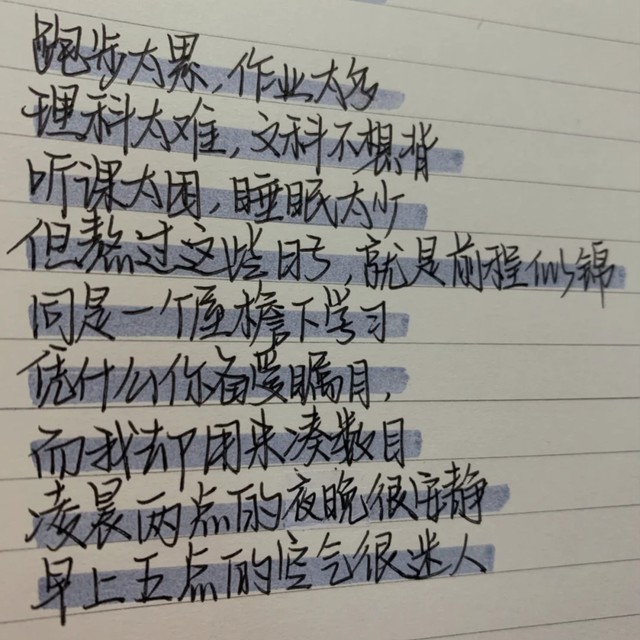 跑步太累，作业太多
理科太难，文科不想背
听课太困，睡眠太少
但熬过这些日子，就是前程似锦
同是一个屋檐下学习
凭什么你备受瞩目，
而我却用来凑数目
凌晨两点的夜晚很安静
早上五点的空气很迷人